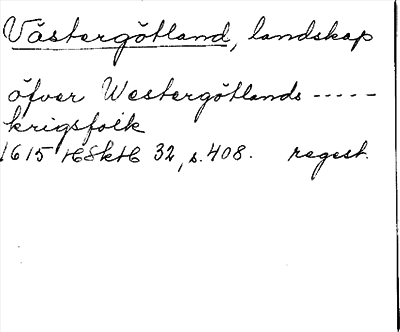 Västergötland, landskap
öfver Westergötlands -----
krigsfolk
1615 HSkH 32, s. 408. regest.